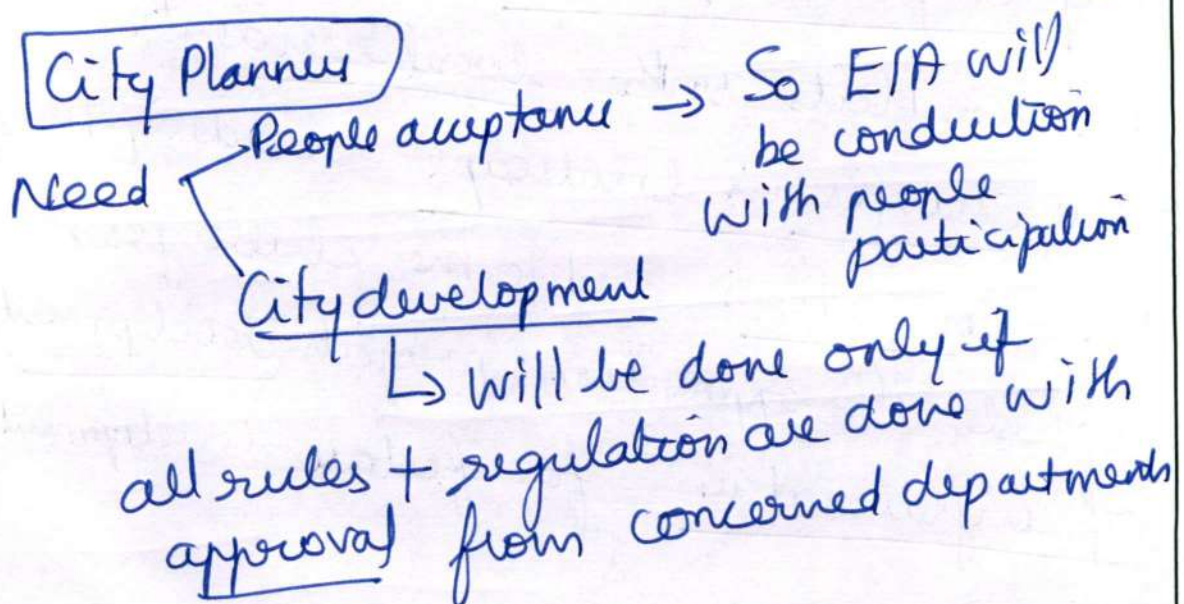 City Planner
Need
People acceptance → So EIA will
be conduction
with people
participation
City development
↳ will be done only if
all rules + regulation are done with
approval from concerned departments